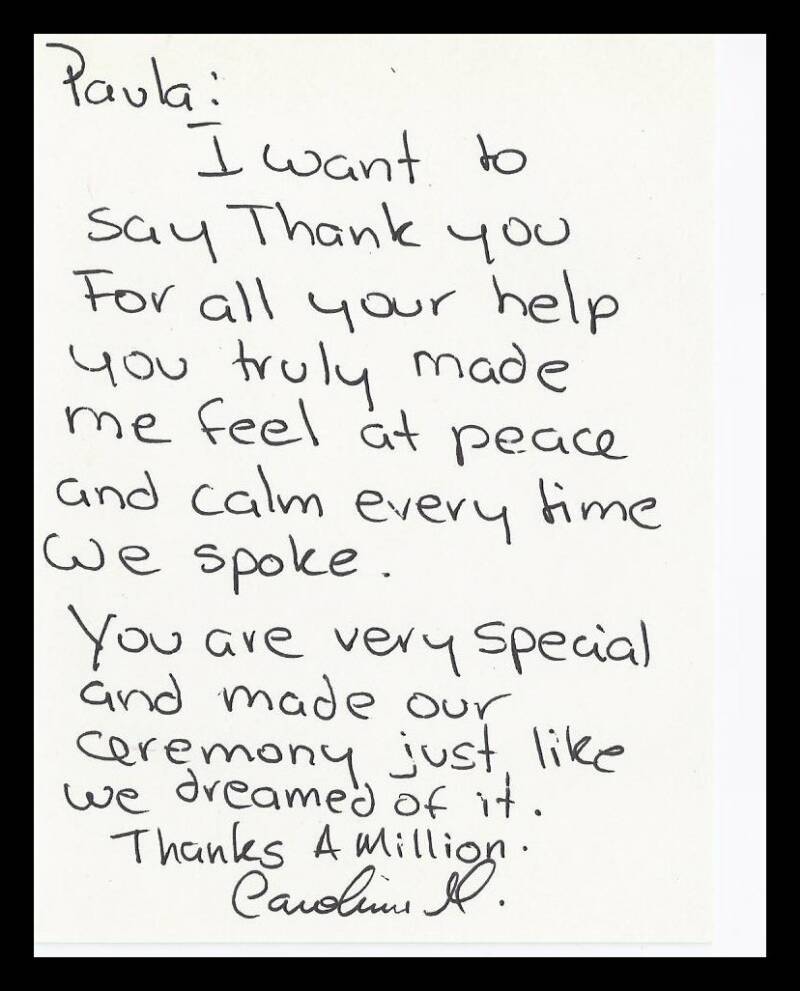 Paula:
I want to
say Thank you
For all your help
you truly made
me feel at peace
and calm every time
we spoke.
You are very special
and made our
ceremony just like
we dreamed of it.
Thanks A Million.
Caroline